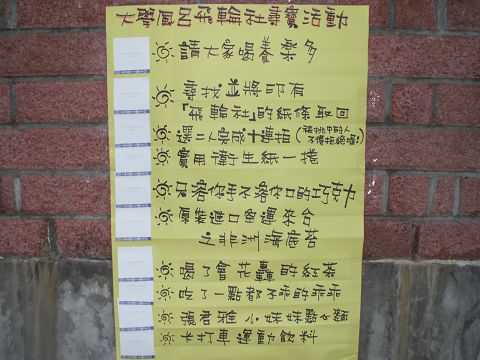 大學風呂飛輪社尋寶活動
請大家喝養樂多
尋找並將印有
「飛輪社」的紙條取回
選二人完成十連拍(被挑中的人
不得拒絕喔!)
實用衛生紙一捲
只溶你手不溶你口的巧克力
原裝進口空運來台
之非洲海底苔
喝了會花轟的紅茶
吃了一點都不乖的乖乖
張君雅小妹妹點心麵
卡打車運動飲料